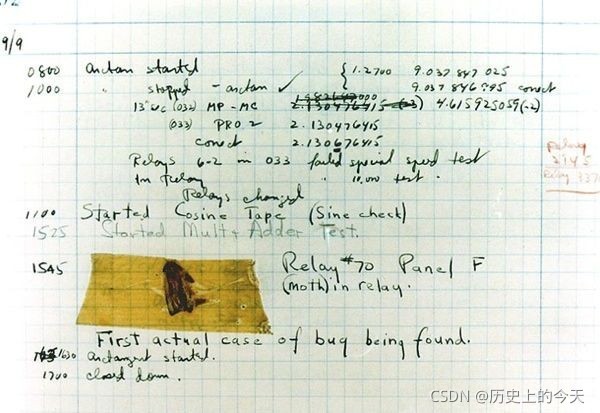 9/9
0800 Antan started
1000 " stopped - antan ✓ { 1.2700 9.037 847 025
9.037 846 995 correct
13"uc (032) MP - MC 2.130476415 (-3) 4.615925059(-2)
(033) PRO 2 2.130476415
correct 2.130676415
Relays 6-2 in 033 failed special speed test
In Relay " 10,000 test .
Relays changed
Relay
2145
Relay 3370
1100 Started Cosine Tape (Sine check)
1525 Started Mult + Adder Test.
1545 Relay #70 Panel F
(moth) in relay.
First actual case of bug being found.
1630 Antangent started.
1700 closed down.
CSDN @历史上的今天